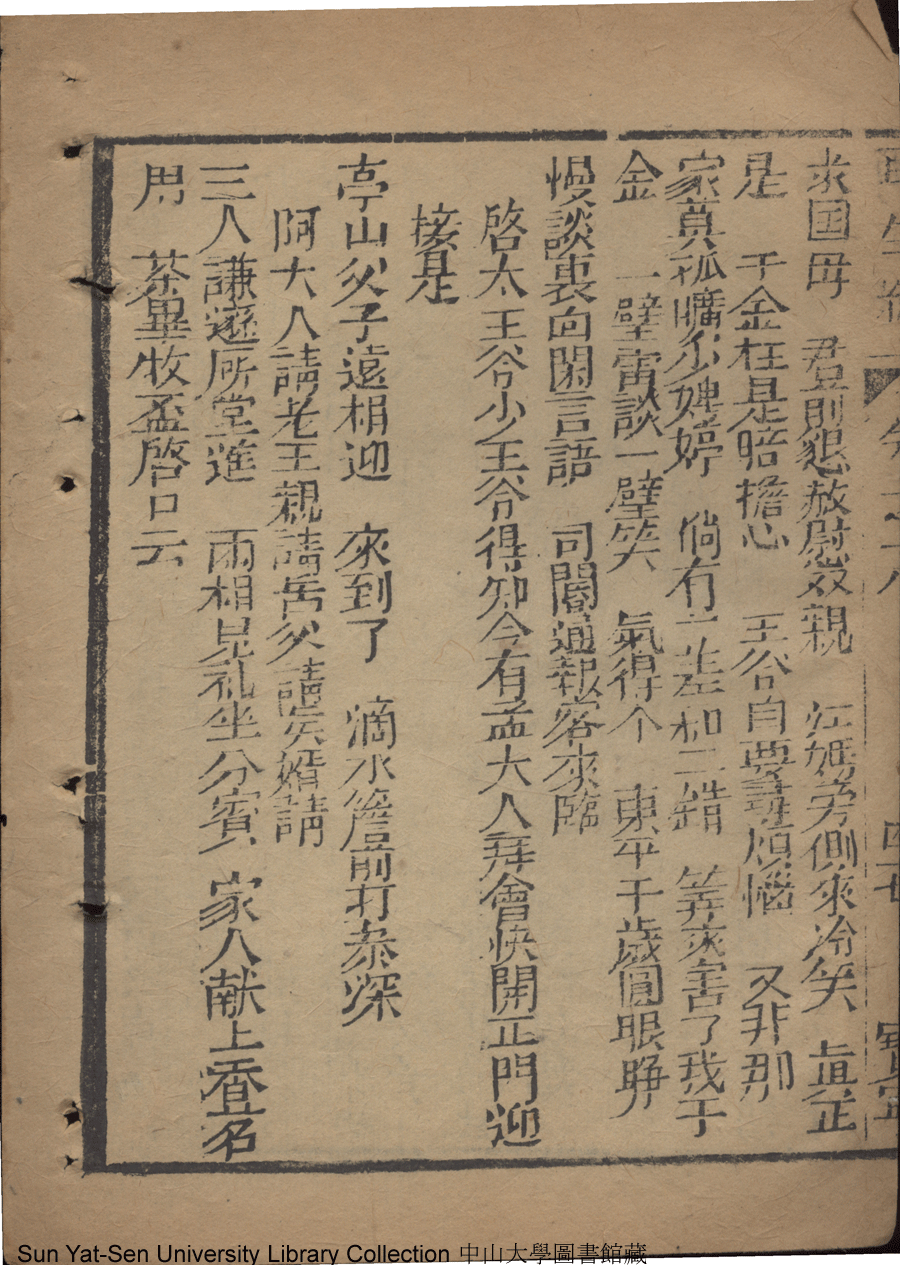 再生緣 卷之十八 四十七 寶寧
求囯毋 君則懇赦慰双親 江媽旁側來冷笑 眞正
是 千金枉是暗擔心 王爷自要尋煩惱 又非那
家莫孤曠少娉婷 倘有一差和二錯 筭來害了我千
金 一壁雷談一壁笑 氣得个 東平千歲圓眼睁
慢談裏向閑言語 司閽通報客來臨
啓太王爷少王爷得知今有孟大人拜會快開正門迎
接是
亭山父子遠相迎 來到了 滴水簷前打恭深
阿大人請老王親請岳父請矦婿請
三人謙遜㕔堂進 兩相見礼坐分賓 家人献上香茗
用 茶畢牧盃啓口云
Sun Yat-Sen University Library Collection 中山大學圖書館藏